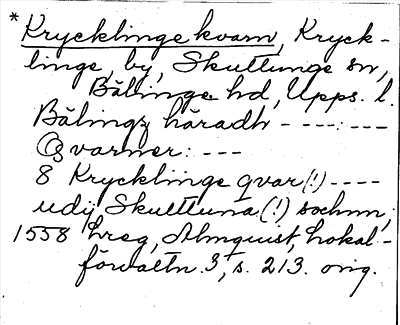 * Krycklinge kvarn, Kryck-
linge, by, Skuttunge sn,
Bälinge hd, Upps. l.
Bälingz häradh - - - : - - -
Qvarner: - - -
8 Krycklinge qvar (!) - - - -
udij Skuttuna (!) sochnn;
1558 hreg, Almquist, Lokal-
förvaltn. 3, s. 213. orig.